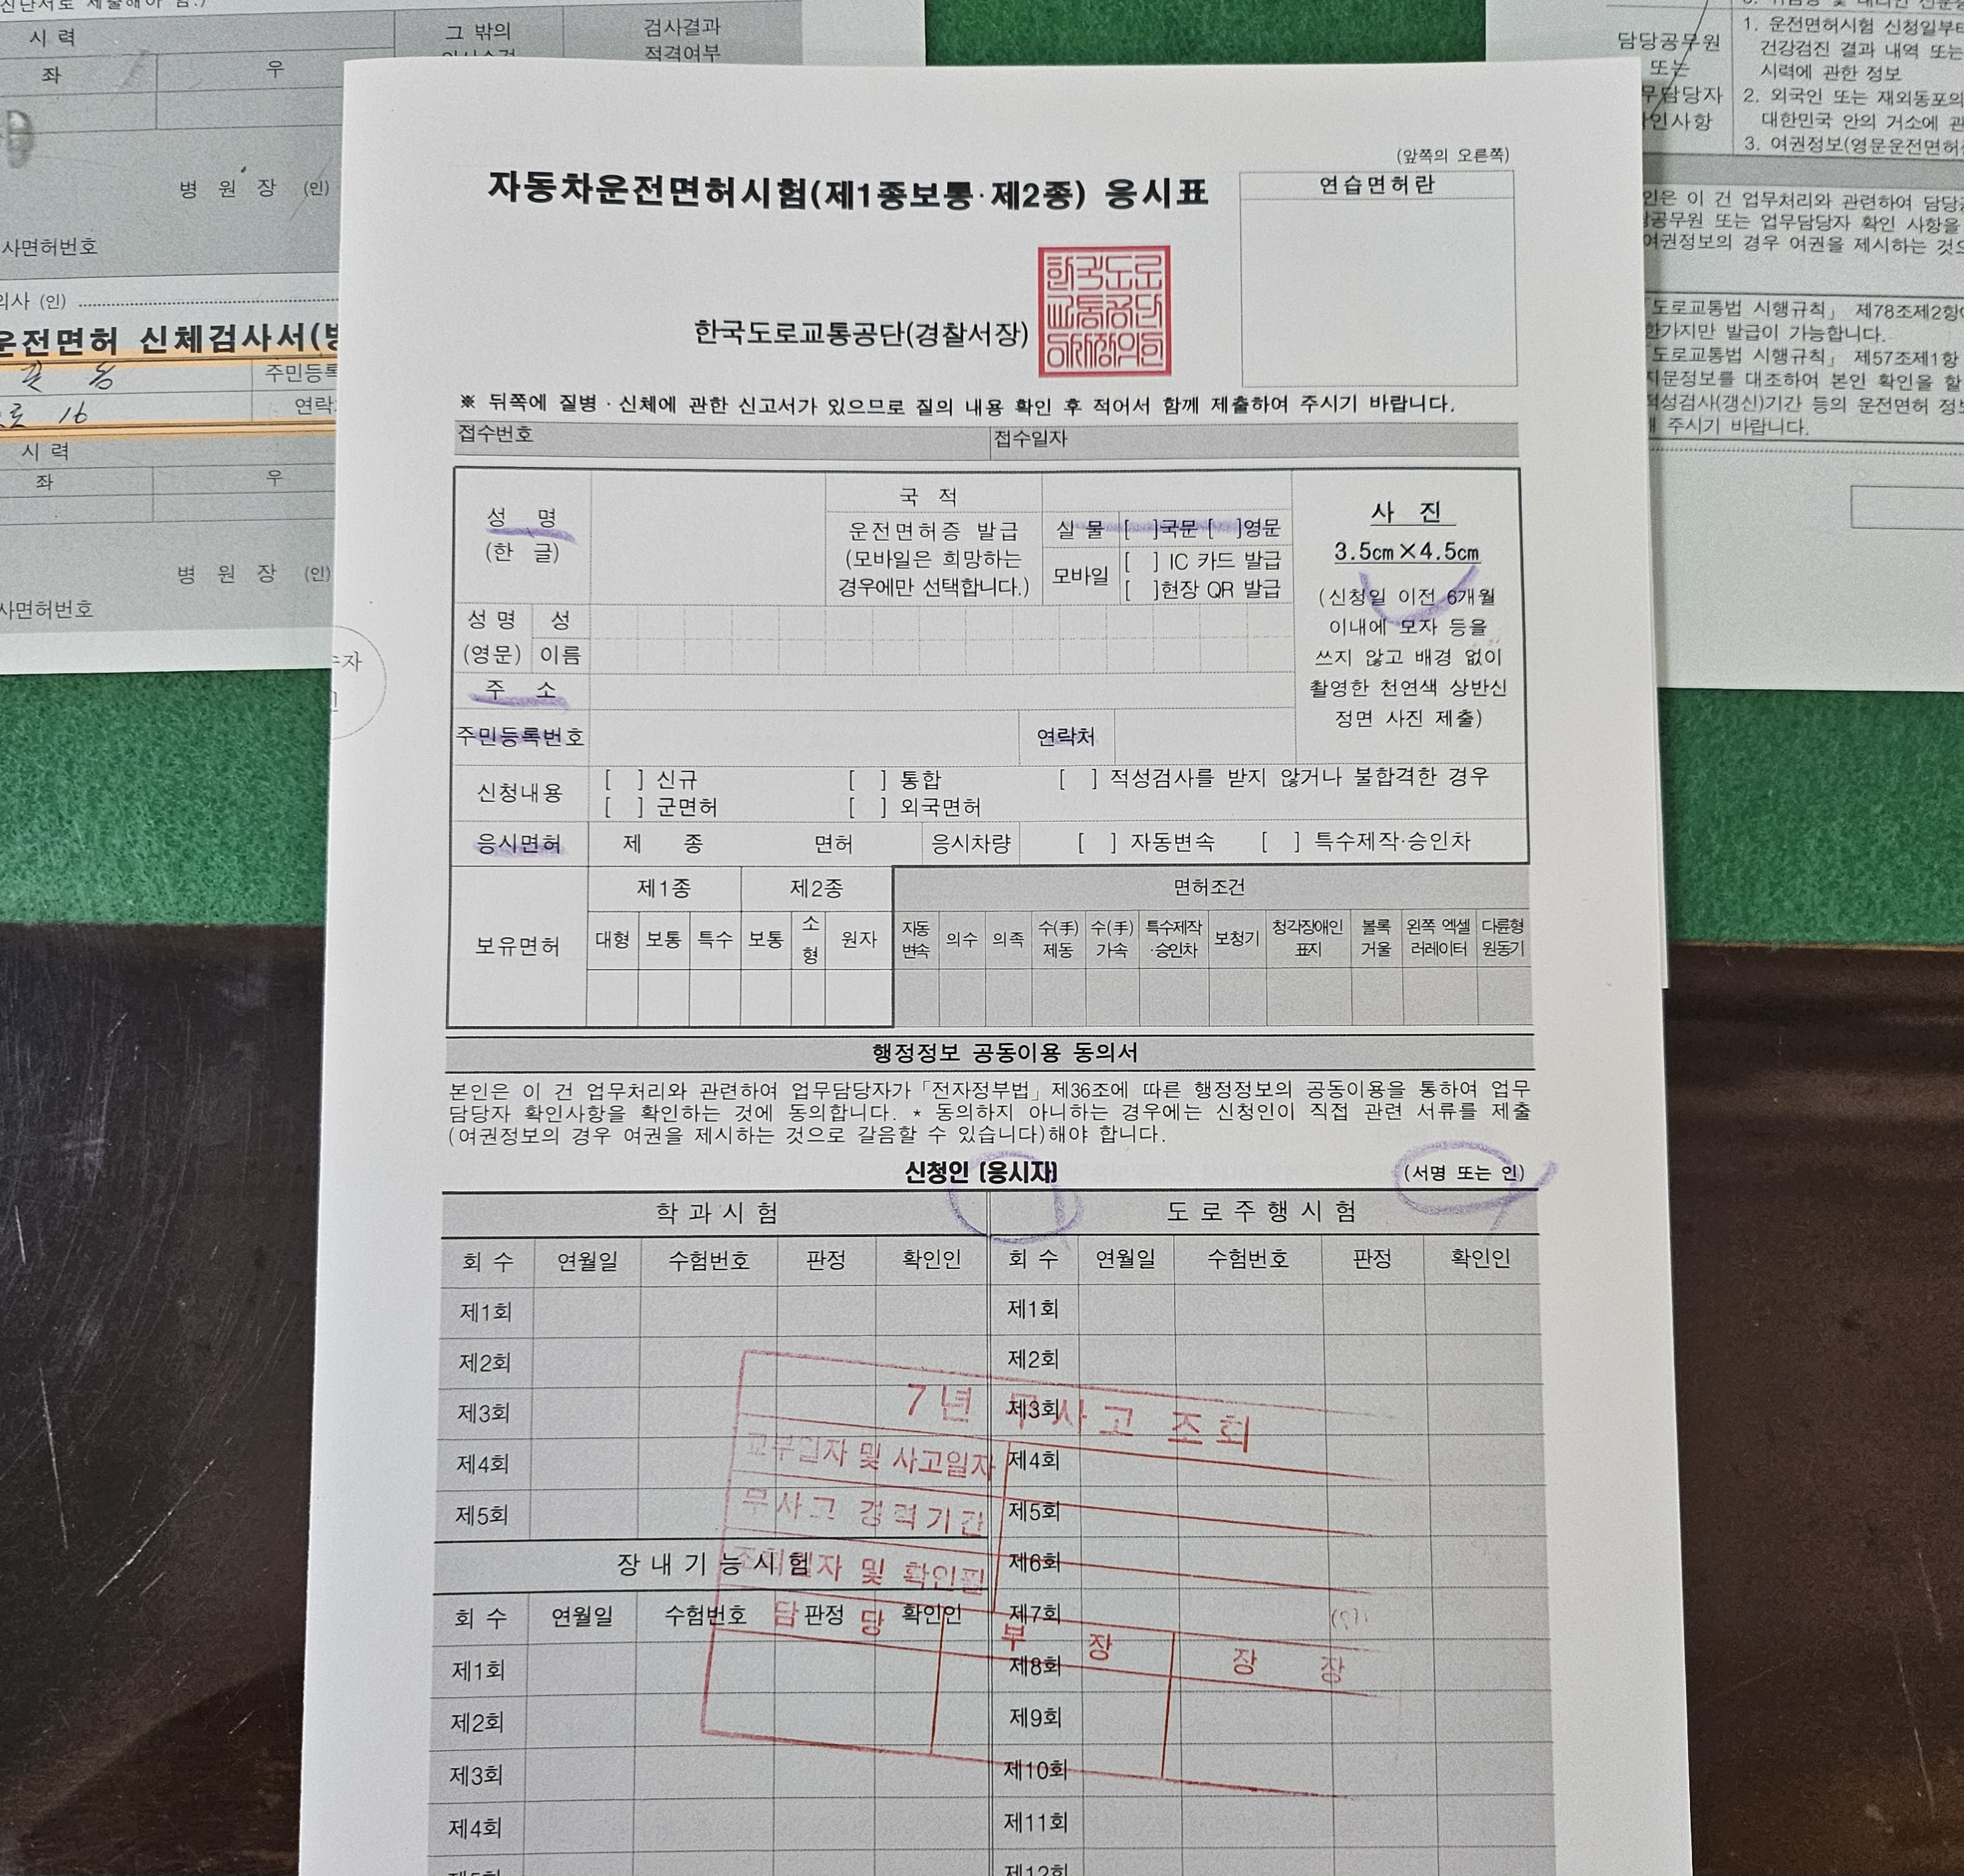 시 력
그 밖의
검사결과
적격여부
좌 우
병 원 장 (인)
사면허번호
의사 (인)
운전면허 신체검사서
주민등록
로 16
연락
시 력
좌 우
병 원 장 (인)
사면허번호
담당공무원
또는
무담당자
인사항
1. 운전면허시험 신청일부터
건강검진 결과 내역 또는
시력에 관한 정보
2. 외국인 또는 재외동포의
대한민국 안의 거소에 관
3. 여권정보(영문운전면허
인은 이 건 업무처리와 관련하여 담당
공무원 또는 업무담당자 확인 사항을
여권정보의 경우 여권을 제시하는 것으
「도로교통법 시행규칙」 제78조제2항
한가지만 발급이 가능합니다.
「도로교통법 시행규칙」 제57조제1항
지문정보를 대조하여 본인 확인을 할
적성검사(갱신)기간 등의 운전면허 정보
주시기 바랍니다.
(앞쪽의 오른쪽)
자동차운전면허시험(제1종보통·제2종) 응시표
연습면허란
한국도로교통공단(경찰서장)
한국도로
교통공단
※ 뒤쪽에 질병·신체에 관한 신고서가 있으므로 질의 내용 확인 후 적어서 함께 제출하여 주시기 바랍니다.
접수번호 접수일자
성 명
(한 글)
국 적
운전면허증 발급
(모바일은 희망하는
경우에만 선택합니다.)
실 물 [ ]국문 [ ]영문
모바일
[ ] IC 카드 발급
[ ]현장 QR 발급
사 진
3.5cm×4.5cm
(신청일 이전 6개월
이내에 모자 등을
쓰지 않고 배경 없이
촬영한 천연색 상반신
정면 사진 제출)
성 명 성
(영문) 이름
주 소
주민등록번호 연락처
신청내용
[ ] 신규 [ ] 통합 [ ] 적성검사를 받지 않거나 불합격한 경우
[ ] 군면허 [ ] 외국면허
응시면허 제 종 면허 응시차량 [ ] 자동변속 [ ] 특수제작·승인차
보유면허
제1종 제2종 면허조건
대형 보통 특수 보통 소형 원자 자동변속 의수 의족 수(手)제동 수(手)가속 특수제작·승인차 보청기 청각장애인표지 볼록거울 왼쪽 엑셀러레이터 다륜형원동기
행정정보 공동이용 동의서
본인은 이 건 업무처리와 관련하여 업무담당자가 「전자정부법」 제36조에 따른 행정정보의 공동이용을 통하여 업무
담당자 확인사항을 확인하는 것에 동의합니다. * 동의하지 아니하는 경우에는 신청인이 직접 관련 서류를 제출
(여권정보의 경우 여권을 제시하는 것으로 갈음할 수 있습니다)해야 합니다.
신청인 (응시자) (서명 또는 인)
학과시험 도로주행시험
회 수 연월일 수험번호 판정 확인인 회 수 연월일 수험번호 판정 확인인
제1회 제1회
제2회 제2회
제3회 제3회
제4회 제4회
제5회 제5회
장내기능시험 제6회
회 수 연월일 수험번호 판정 확인인 제7회
제1회 제8회
제2회 제9회
제3회 제10회
제4회 제11회
제5회 제12회
7년 무사고 조회
교부일자 및 사고일자
무사고 경력기간
조회일자 및 확인필
담 당 부 장 장 장